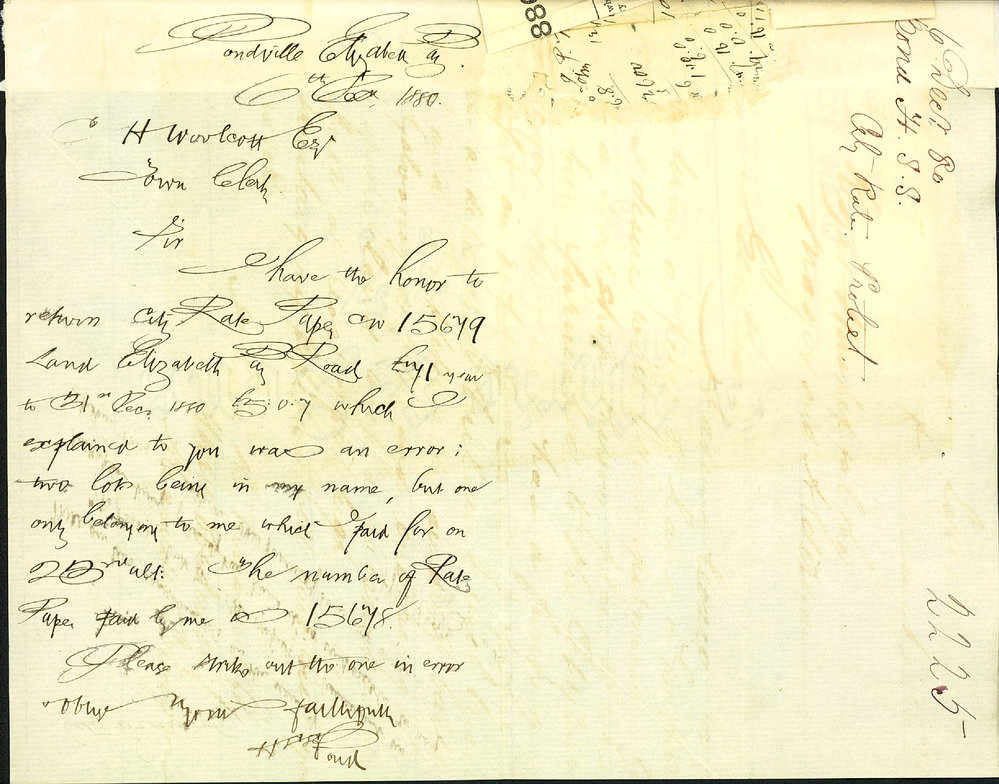 Bondville Elizabeth By.
6th Decr. 1880.
H Woolcott Esqr
Town Clerk
Sir
I have the honor to
return City Rate Paper on 15679
Land Elizabeth By Road for 1 year
to 31st Decr. 1880 0.7 which I
explained to you was an error;
two lots being in my name, but one
only belonging to me which I paid for on
23rd ult: The number of Rate
Paper paid by me is 15678.
Please strike out the one in error
& oblige Yours faithfully
H Bond
6 Decr. 80
Bond H. S. S.
City Rate. Protest.
2225
088